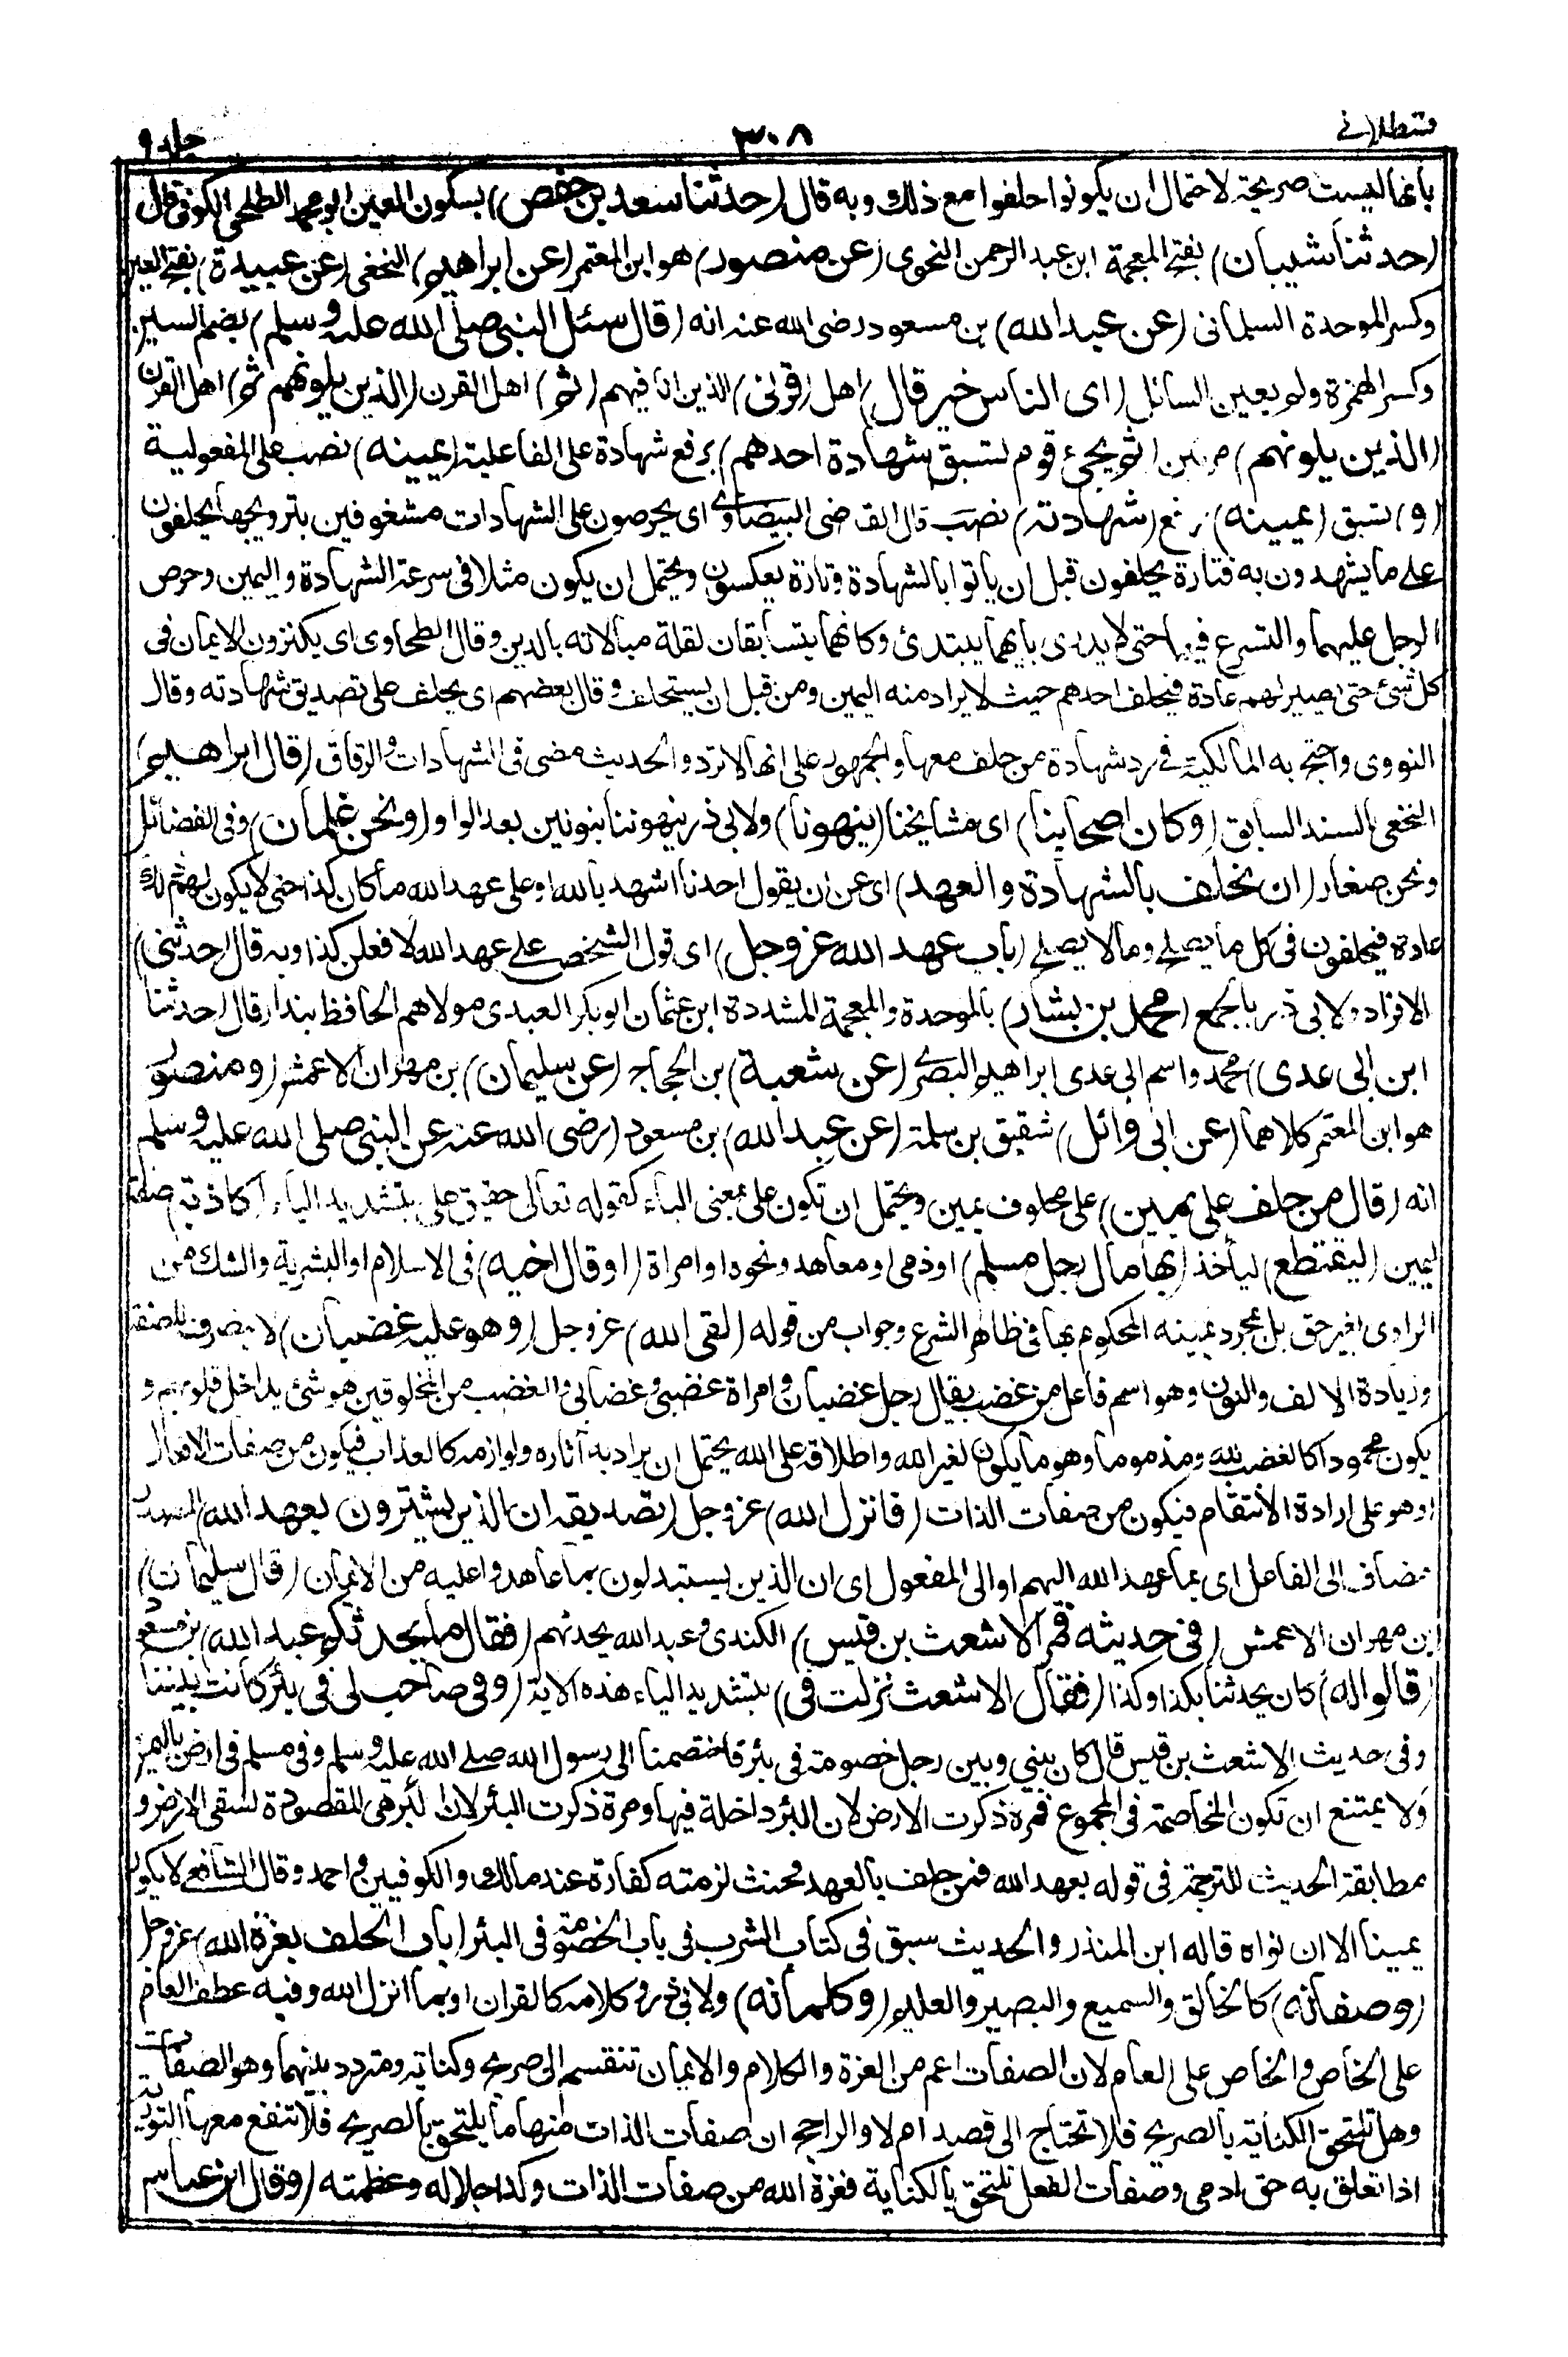 قسطلانی ٣٠٨ جلد ٩
بانها ليست صريحة لاحتمال ان يكونوا حلفوا مع ذلك وبه قال (حدثنا سعد بن حفص) بسكون العين ابو محمد الطلحى الكوفى قال
(حدثنا شيبان) بفتح المعجمة ابن عبد الرحمن النحوى (عن منصور) هو ابن المعتمر (عن ابراهيم) النخعى (عن عبيدة) بفتح العين
وكسر الموحدة السلمانى (عن عبد الله) بن مسعود رضى الله عنه انه (قال سئل النبى صلى الله عليه وسلم) بضم السين
وكسر الهمزة ولم يعين السائل (اى الناس خير قال) اهل (قرنى) الذين انا فيهم (ثم) اهل القرن (الذين يلونهم ثم) اهل القرن
(الذين يلونهم) مرتين (ثم يجىء قوم تسبق شهادة احدهم) برفع شهادة على الفاعلية (يمينه) نصب على المفعولية
(و) تسبق (يمينه) رفع (شهادته) نصب قال القاضى البيضاوى اى يحرصون على الشهادات مشغوفين بترويجها يحلفون
على ما يشهدون به فتارة يحلفون قبل ان ياتوا بالشهادة وتارة يعكسون ويحتمل ان يكون مثلا فى سرعة الشهادة واليمين وحرص
الرجل عليهما والتسرع فيهما حتى لا يدرى بايهما يبتدئ وكانهما يتسابقان لقلة مبالاته بالدين وقال الطحاوى اى يكثرون الايمان فى
كل شئ حتى يصير لهم عادة فيحلف احدهم حيث لا يراد منه اليمين ومن قبل ان يستحلف وقال بعضهم اى يحلف على تصديق شهادته وقال
النووى واحتج به المالكية فى رد شهادة من حلف معها والجمهور على انها لا ترد والحديث مضى فى الشهادات والرقاق (قال ابراهيم)
النخعى بالسند السابق (وكان اصحابنا) اى مشايخنا (ينهونا) ولابى ذر ينهوننا بنونين بعد الواو (ونحن غلمان) وفى الفضائل
ونحن صغار (ان نحلف بالشهادة والعهد) اى عن ان يقول احدنا اشهد بالله او على عهد الله ما كان كذا حتى لا يكون لهم ذلك
عادة فيحلفون فى كل ما يصلح وما لا يصلح (باب عهد الله عز وجل) اى قول الشخص على عهد الله لا فعلن كذا وبه قال (حدثنى)
الافراد ولابى ذر بالجمع (محمد بن بشار) بالموحدة والمعجمة المشددة ابن عثمان ابو بكر العبدى مولاهم الحافظ بندار قال (حدثنا
ابن ابى عدى) محمد واسم ابى عدى ابراهيم البصرى (عن شعبة) بن الحجاج (عن سليمان) بن مهران الاعمش (ومنصور
هو ابن المعتمر كلاهما (عن ابى وائل) شقيق بن سلمة (عن عبد الله) بن مسعود (رضى الله عنه عن النبى صلى الله عليه وسلم
انه (قال من حلف على يمين) على محلوف يمين ويحتمل ان تكون على بمعنى الباء كقوله تعالى حقيق على بتشديد الياء (كاذبة) صفة
ليمين (ليقتطع) لياخذ (بها مال رجل مسلم) او ذمى او معاهد ونحوه او امراة (او قال اخيه) فى الاسلام او البشرية والشك من
الراوى بغير حق بل بمجرد يمينه المحكوم بها فى ظاهر الشرع وجواب من قوله (لقى الله) عز وجل (وهو عليه غضبان) لا ينصرف للصفة
وزيادة الالف والنون وهو اسم فاعل من غضب يقال رجل غضبان وامراة غضبى وغضابى والغضب من المخلوقين هو شئ يداخل قلوبهم و
يكون محمودا كالغضب لله ومذموما وهو ما يكون لغير الله واطلاقه على الله يحتمل ان يراد به آثاره ولوازمه كالعذاب فيكون من صفات الافعال
او هو على ارادة الانتقام فيكون من صفات الذات (فانزل الله) عز وجل (تصديقه ان الذين يشترون بعهد الله) المصدر
مضاف الى الفاعل اى بما عهد الله اليهم او الى المفعول اى ان الذين يستبدلون بما عاهدوا عليه من الايمان (قال سليمان)
بن مهران الاعمش (فى حديثه فمر الاشعث بن قيس) الكندى وعبد الله يحدثهم (فقال ما يحدثكم عبد الله) بن مسعود
(قالوا له) كان يحدثنا بكذا وكذا (فقال الاشعث نزلت فى) بتشديد الياء هذه الاية (وفى صاحب لى فى بئر كانت بيننا
وفى حديث الاشعث بن قيس قال كان بينى وبين رجل خصومة فى بئر فاختصمنا الى رسول الله صلى الله عليه وسلم وفى مسلم فى ارض باليمن
ولا يمتنع ان تكون المخاصمة فى المجموع فمرة ذكرت الارض لان البئر داخلة فيها ومرة ذكرت البئر لان البئر هى المقصودة لسقى الارض و
مطابقة الحديث للترجمة فى قوله بعهد الله فمن حلف بالعهد فحنث لزمته كفارة عند مالك والكوفيين واحمد وقال الشافعى لا يكون
يمينا الا ان نواه قاله ابن المنذر والحديث سبق فى كتاب الشرب فى باب الخصومة فى البئر (باب الحلف بعزة الله) عز وجل
(وصفاته) كالخالق والسميع والبصير والعليم (وكلماته) ولابى ذر وكلامه كالقران او بما انزل الله وفيه عطف العام
على الخاص والخاص على العام لان الصفات اعم من العزة والكلام والايمان تنقسم الى صريح وكناية ومتردد بينهما وهو الصفات
وهل تلتحق الكناية بالصريح فلا تحتاج الى قصد ام لا والراجح ان صفات الذات منها ما يلتحق بالصريح فلا تنفع معها التورية
اذا تعلق به حق ادمى وصفات الفعل تلتحق بالكناية فعزة الله من صفات الذات وكذا جلاله وعظمته (وقال ابن عباس